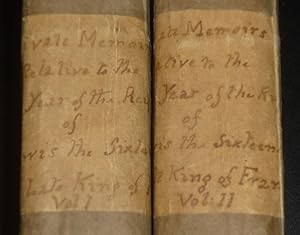 ivate Memoirs
Relative to the
Year of the Re
of
wis the Sixte
Late King of
Vol I
ate Memoirs
ative to the
Year of the R
of
is the Sixteen
King of Fran
Vol: II